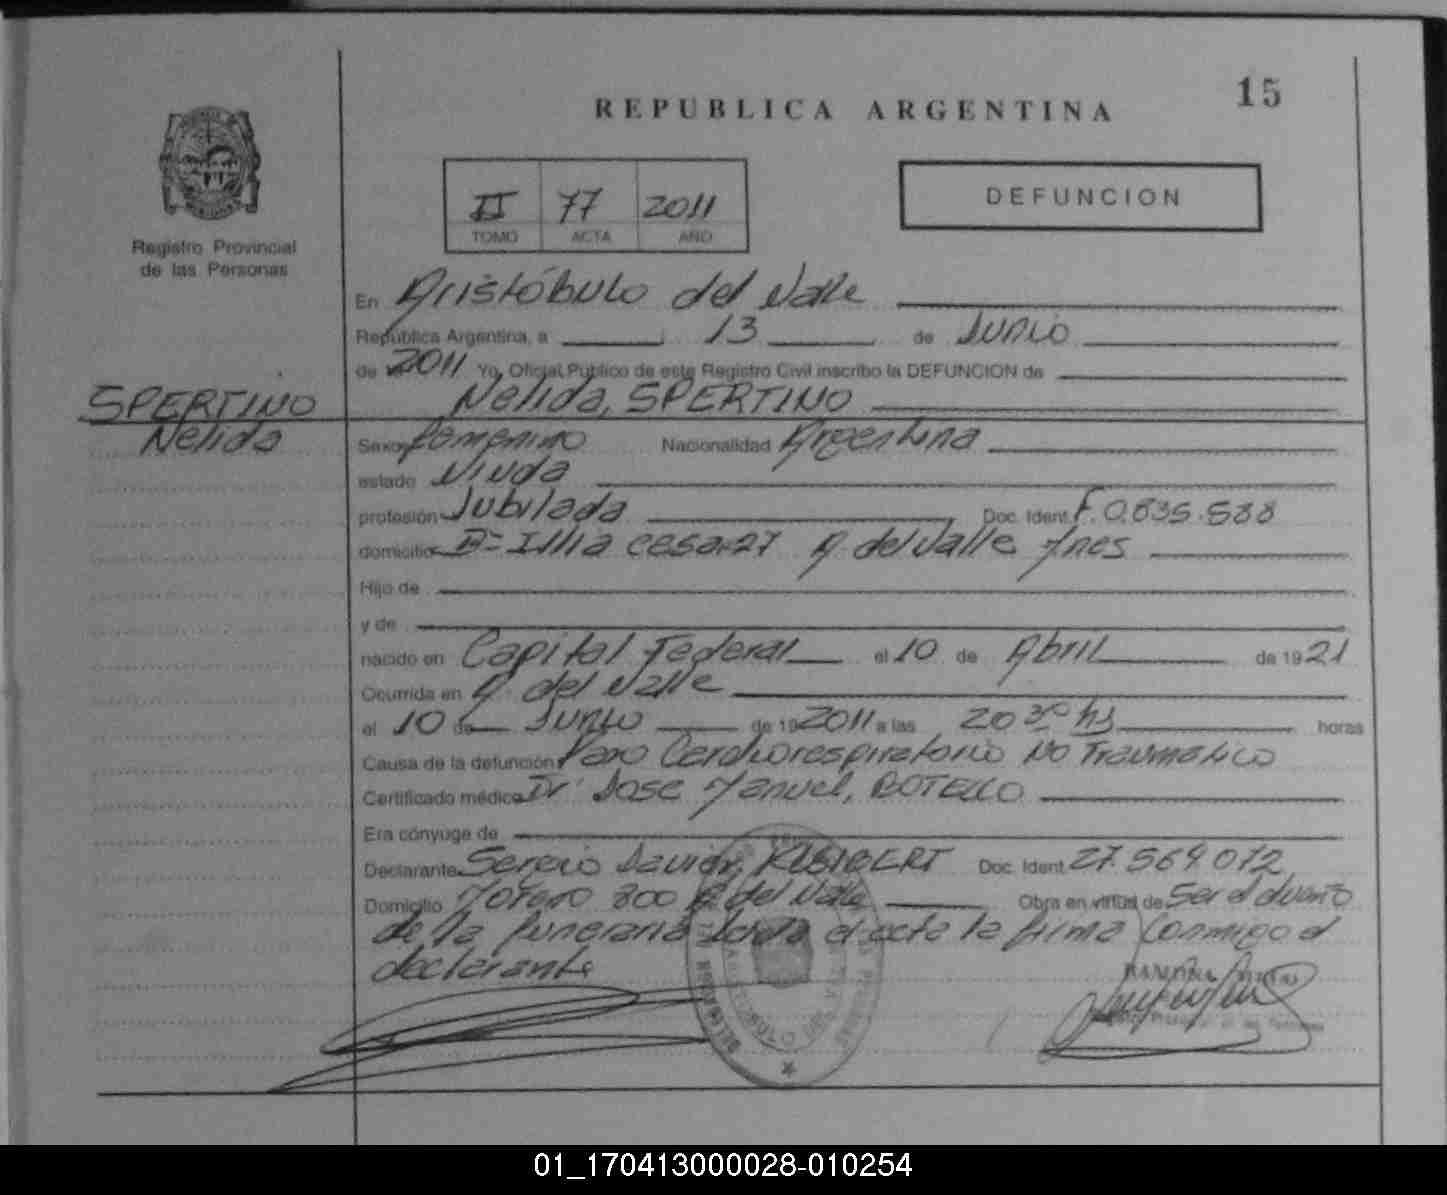 15
REPUBLICA ARGENTINA
DEFUNCION
II 77 2011
TOMO ACTA AÑO
Registro Provincial
de las Personas
En Aristóbulo del Valle
República Argentina, a 13 de Junio
de 2011 Yo, Oficial Público de este Registro Civil inscribo la DEFUNCION de
SPERTINO
Nelida, SPERTINO
Nelida
Sexo femenino Nacionalidad Argentina
estado Viuda
profesión Jubilada Doc. Ident. F. 0.835.588
domicilio Bº Illia cesa-27 A. del Valle Mnes
Hijo de
y de
nacido en Capital Federal el 10 de Abril de 1921
Ocurrida en Aº del Valle
el 10 de Junio de 19 2011 a las 20 30 hs horas
Causa de la defunción Paro Cardiorespiratorio No Traumatico
Certificado médico Dr. Jose Manuel, BOTELLO
Era cónyuge de
Declarante Sergio Javier, Doc. Ident. 27.569.072
Domicilio 800 A del Valle Obra en virtud de Ser el dueño
de la funeraria el acta la firma Conmigo el
declarante
RAMONA
01_170413000028-010254